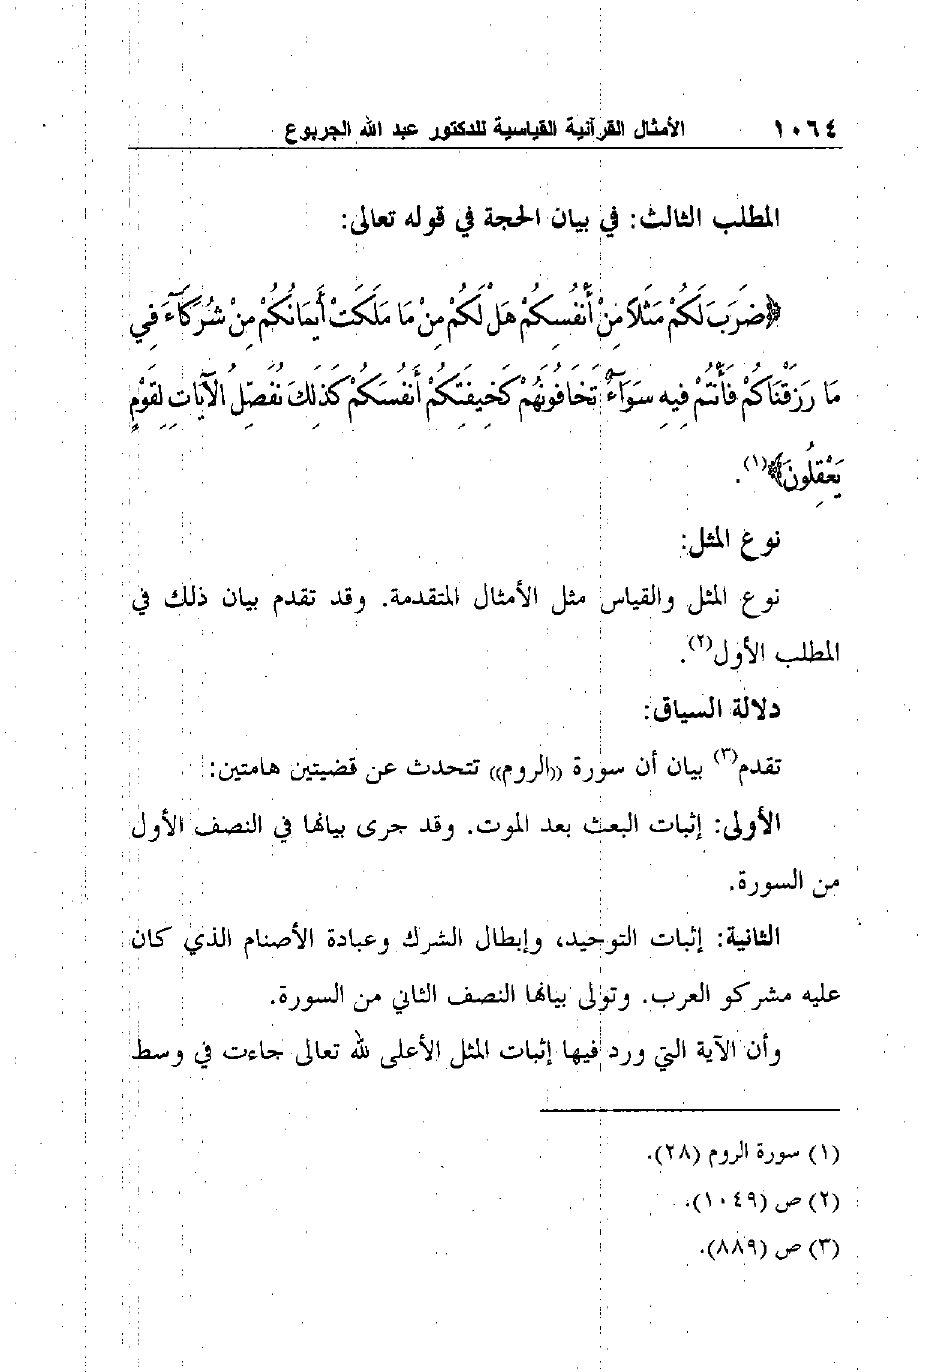 ١٠٦٤ الأمثال القرآنية القياسية للدكتور عبد الله الجربوع
المطلب الثالث: في بيان الحجة في قوله تعالى:
﴿ضَرَبَ لَكُمْ مَثَلاً مِنْ أَنْفُسِكُمْ هَلْ لَكُمْ مِنْ مَا مَلَكَتْ أَيْمَانُكُمْ مِنْ شُرَكَآءَ فِي
مَا رَزَقْنَاكُمْ فَأَنْتُمْ فِيهِ سَوَآءٌ تَخَافُونَهُمْ كَخِيفَتِكُمْ أَنْفُسَكُمْ كَذَلِكَ نُفَصِّلُ الْآيَاتِ لِقَوْمٍ
يَعْقِلُونَ﴾(١).
نوع المثل:
نوع المثل والقياس مثل الأمثال المتقدمة. وقد تقدم بيان ذلك في
المطلب الأول(٢).
دلالة السياق:
تقدم(٣) بيان أن سورة ((الروم)) تتحدث عن قضيتين هامتين:
الأولى: إثبات البعث بعد الموت. وقد جرى بيانها في النصف الأول
من السورة.
الثانية: إثبات التوحيد، وإبطال الشرك وعبادة الأصنام الذي كان
عليه مشركو العرب. وتولى بيانها النصف الثاني من السورة.
وأن الآية التي ورد فيها إثبات المثل الأعلى لله تعالى جاءت في وسط
(١) سورة الروم (٢٨).
(٢) ص (١٠٤٩).
(٣) ص (٨٨٩).